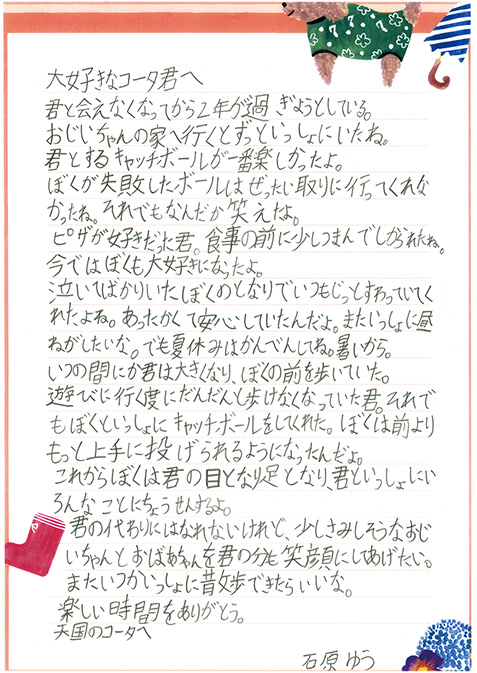 大好きなコータ君へ
君と会えなくなってから2年が過ぎようとしている。
おじいちゃんの家へ行くとずっといっしょにいたね。
君とするキャッチボールが一番楽しかったよ。
ぼくが失敗したボールはぜったい取りに行ってくれな
かったね。それでもなんだか笑えたよ。
ピザが好きだった君。食事の前に少しつまんでしかられたね。
今ではぼくも大好きになったよ。
泣いてばかりいたぼくのとなりでいつもじっとすわっていてく
れたよね。あったかくて安心していたんだよ。またいっしょに昼
ねがしたいな。でも夏休みはかんべんしてね。暑いから。
いつの間にか君は大きくなり、ぼくの前を歩いていた。
遊びに行く度にだんだんと歩けなくなっていた君。それで
もぼくといっしょにキャッチボールをしてくれた。ぼくは前より
もっと上手に投げられるようになったんだよ。
これからぼくは君の目となり足となり、君といっしょにい
ろんなことにちょうせんするよ。
君の代わりにはなれないけれど、少しさみしそうなおじ
いちゃんとおばあちゃんを君の分も笑顔にしてあげたい。
またいつかいっしょに散歩できたらいいな。
楽しい時間をありがとう。
天国のコータへ
石原ゆう